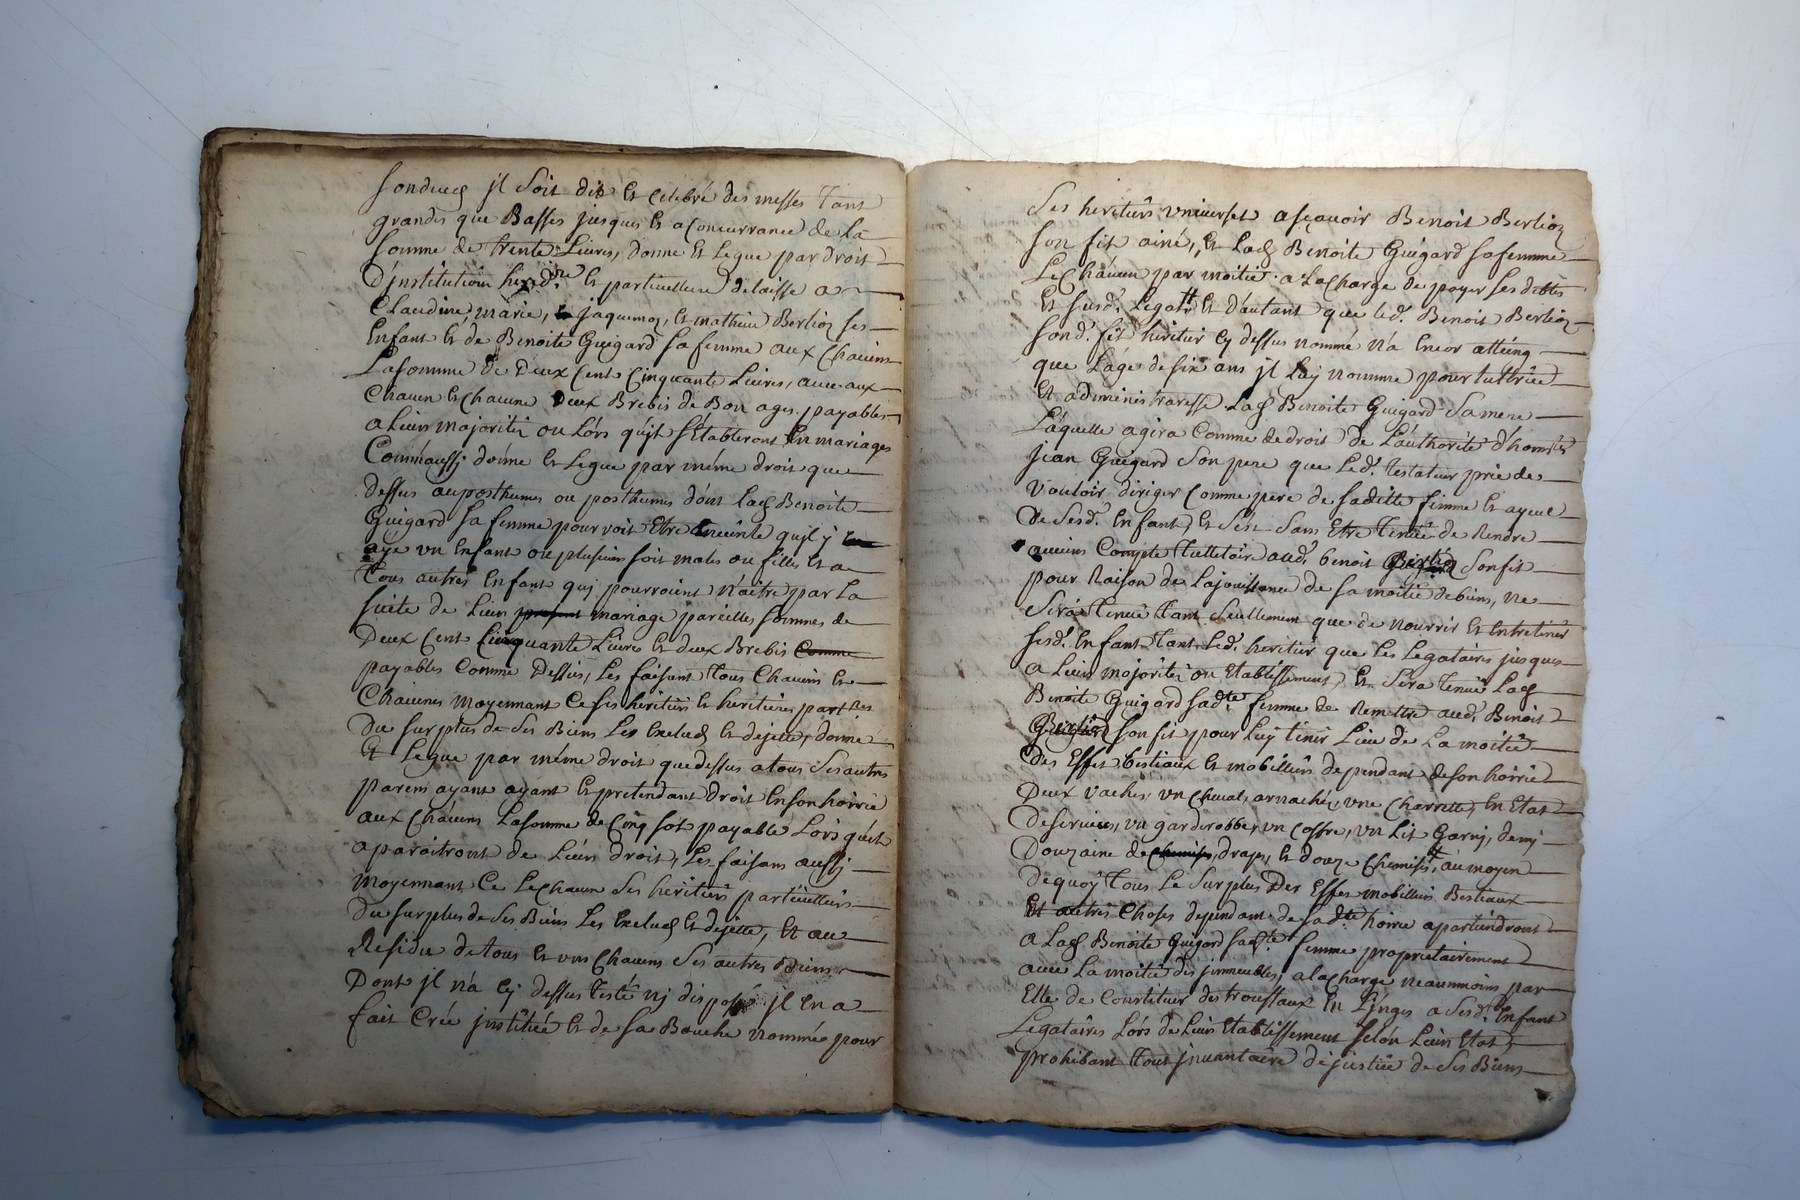 sondeces jl Soit dit Et Celebré des messes Tant
grandes que Basses jusques Et a Concurrance de La
Somme de trente Livres, donne Et Legue par droit
D'jnstitution hered.re Et particulliere delaisse a
Claudine, marie, jaquemoz, Et mathieu Berlioz ses
Enfant Et de Benoite Guigard sa femme aux Chacuns
La somme de Deux Cent Cinquante Livres, avec aux
Chacun Et Chacune Deux Brebis de Bon ages. payables
a Leurs majorités ou Lórs qujls s'Etabliront En mariages
Comm'aussj donne Et Legue par même droit que
dessus au posthumes ou posthumes dónt Lad Benoite
Guigard sa femme pourroit Etre Enceinte qujl ÿ
aÿe un Enfant ou plusieurs soit males ou filles Et a
Tous autres Enfant quj pourroient Náitre par La
suite de Leur present mariage pareilles sommes de
Deux Cent Cinquante Livres Et deux Brebis Comme
payables Comme Dessus, Les faisant Tous Chacuns Et
Chacunes moyennant Ce ses héritiers Et heritieres part.res
Du surplus de Ses Biens Les Exclud Et dejette, donne
Et Legue par méme droit que dessus a tous Ses autres
parens ayant ayant Et pretendant droit En son hoirie
aux Chácuns La somme de Cinq sols payable Lórs qu'ils
aparoitront de Leurs droit, Les faisant aussj
moyennant Ce Le Chacun Ses héritiers particulliers
Du surplus de Ses Biens Les Exclud Et dejette, Et au
Residu de tous Et uns Chacuns Ses autres Biens
Dont jl n'a Cy dessus Testé nj disposé jl En a
fait Crée jnstitué Et de Sa Bouche nommé pour
Ses heritiers universels a sçavoir Benoit Berlioz
Son fils ainé, Et Lad Benoite Guigard sa femme
Le Chácun par moitié a La Charge de payer Ses dettes
Et susd. Legats Et D'autant que Led. Benoit Berlioz
Sond. fils héritier Cy dessus nommé n'a Encor atteint
que L'áge de six ans jl Luy nomme pour tuttrice
Et administraresse Lad Benoite Guigard Sa mere
Láquelle agira Comme de droit de L'áuthorité d'honn.te
jean Guigard Son pere que Led. Testateur prie de
Vouloir diriger Comme pere de sa ditte femme Et ayeul
De Sesd. Enfant, Et Sera Sans Etre Tenüe de Rendre
aucuns Compte Tuttelaire aud. benoit Berlioz Son fils
pour Raison de La jouissance de sa moitié de biens, ne
Sera Tenüe Tant Seullement que de nourrir Et Entretenir
sesd. Enfant Tant Led. héritier que Les Legataires jusques
a Leurs majorités ou Etablissement, Et Sera Tenüe Lad
Benoite Guigard sad.te femme de Remettre aud. Benoit
Berlioz Son fils pour Luy tenir Lieu de La moitié
Des Effet bestiaux Et mobilliers dependant de son hoirie
Deux Vaches, un Cheval, arnaché, une Charrette, En Etat
de servir, un garderobbe, un Coffre, un Lit Garnj, demj
Douzaine de Chemises, draps, Et douze Chemises, au moyen
de quoÿ Tous Le Surplus Des Effet mobilliers Bestiaux
Et autres Choses dependant de sad.te hoirie apartiendront
a Lad Benoite Guigard sad.te femme proprietairement
avec La moitié des jmmeubles, a La Charge néanmoins par
Elle de Constituer des troussaux En Linges a Sesd. Enfant
Legataires Lórs de Leurs Etablissement selón Leurs Etat,
prohibant Tout jnvantaire de justice de Ses Biens